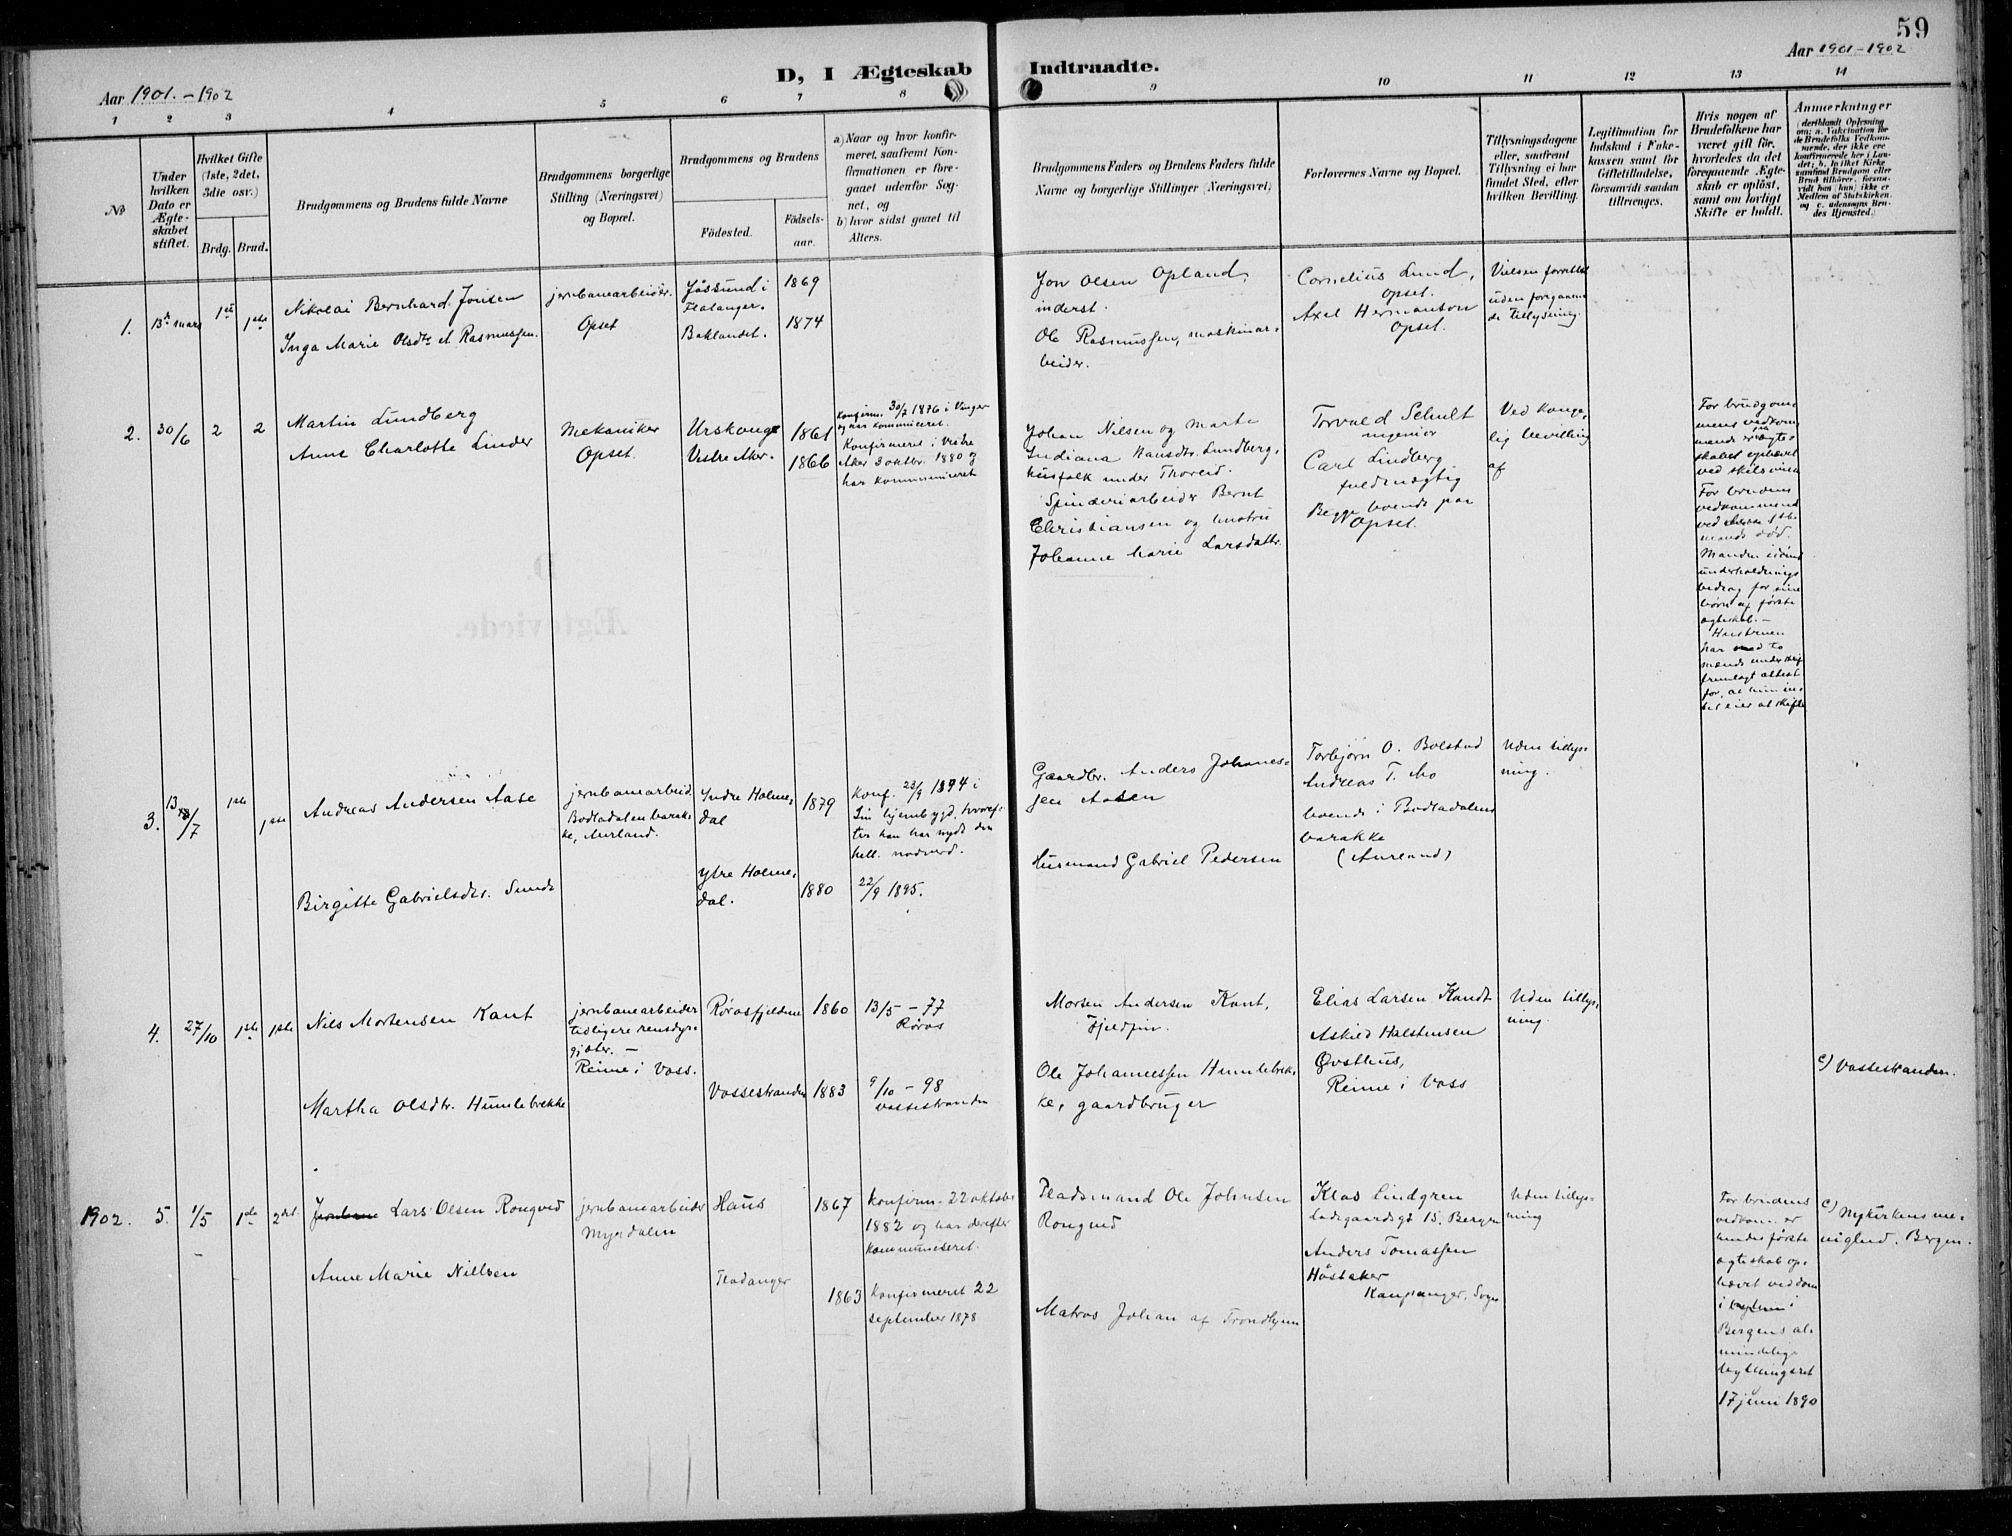 59
D, I Ægteskab Indtraadte.
Aar 1901. - 1902
Aar 1901 - 1902
1 2 3 4 5 6 7 8 9 10 11 12 13 14
No
Under
hvilken
Dato er
Ægte-
skabet
stiftet.
Hvilket Gifte
(1ste, 2det,
3die osv.)
Brdg. Brud.
Brudgommens og Brudens fulde Navne
Brudgommens borgerlige
Stilling (Næringsvei)
og Bopæl.
Brudgommens og Brudens
Födested.
Födsels-
aar.
a) Naar og hvor konfir-
meret, saafremt Kon-
firmationen er fore-
gaaet udenfor Sog-
net, og
b) hvor sidst gaaet til
Alters.
Brudgommens Faders og Brudens Faders fulde
Navne og borgerlige Stillinger (Næringsvei)
Forlovernes Navne og Bopæl.
Tillysningsdagene
eller, saafremt
Tillysning ei har
fundet Sted, efter
hvilken Bevilling.
Legitimation for
Indskud i Enke-
kassen samt for
Giftetilladelse,
forsaavidt saadan
tiltrænges.
Hvis nogen af
Brudefolkene har
været gift för,
hvorledes da det
foregaaende Ægte-
skab er oplöst,
samt om lovligt
Skifte er holdt.
Anmerkninger
(deriblandt Oplysning
om: a. Vakcination for
de Brudefolks Vedkom-
mende, der ikke ere
konfirmerede her i Lan-
det; b. hvilket Kirke-
samfund Brudgom eller
Brud tilhörer, forsaa-
vidt han (hun) ikke er
Medlem af Statskirken,
og c. udensogns Bru-
des Hjemsted.)
1. 13de mars 1ste 1ste
Nikolai Bernhard Jonsen
Inga Marie Olsdtr. et Rasmussen.
jernbanearbeider.
Opset
Jössund i
Flatanger.
Baklandet.
1869
1874
Jon Olsen Opland,
inderst.
Ole Rasmussen, maskinar-
beider.
Cornelius Lund,
Opset.
Axel Hermanson
Opset.
Vielsen forrettet
uden foregaaen-
de tillysning.
2. 30/6 2 2
Martin Lundberg
Anne Charlotte Linder
Mekaniker
Opset.
Urskoug
Vestre Aker.
1861
1866
Konfirm. 30/7 1876 i Vinger
og har kommuniceret.
Konfirmeret i Vestre
Aker 3 oktbr. 1880 og
har kommuniceret
Johan Nilsen og Marte
Indiana Hansdtr. Lundberg,
husfolk under Thoreid.
Spinderiarbeider Bernt
Christiansen og hustru
Johanne Marie Larsdatter.
Torvald Schult
ingeniör
Carl Lindberg
fuldmægtig
Begge boende paa
Opset.
Ved konge-
lig bevilling
af
For brudgom-
mens vedkom-
mende er ægte-
skabet ophævet
ved skilsmisse
For brudens
vedkommende
ved første
mands död.
underholdnings
bidrag for sine
börn af förste
ægteskab. -
Hustruen
har med to
mænds underskrift
fremlagt attest
for, at hun in-
tet eier at skifte
3. 13/7 1ste 1ste
Andreas Andersen Aase
Birgitte Gabrielsdtr. Sunde
jernbanearbeid.
Bodladalen barak-
ke, Aurland.
Indre Holme-
dal
Ytre Holme-
dal.
1879
1880
Konf. 23/9 1894 i
sin hjembygd, hvoref-
ter han har nydt den
hell. nadverd.
22/9 1895.
Gaardbr. Anders Johanes-
sen Aasen
Husmand Gabriel Pedersen
Torbjørn O. Bolstad
Andreas T. Mo
boende i Bodladalens
barakke
(Aurland)
Uden tillys-
ning.
4. 27/10 1ste 1ste
Nils Mortensen Kant
Martha Olsdtr. Humlebrekke
jernbanearbeider
tidligere rensdyrs-
gjæter. -
Reime i Voss.
Rørosfjeldene
Vossestranden
1860
1883
13/5 - 77
Røros
9/10 - 98
Vossestranden
Morten Andersen Kant,
Fjeldfin.
Ole Johannessen Humlebrek-
ke, gaardbruger
Elias Larsen Kandt
Askild Halstensen
Øvsthus,
Reime i Voss
Uden tillys-
ning.
c) Vossestranden.
1902. 5. 1/5 1ste 2det
Lars Olsen Rongved
Anne Marie Nillsen
jernbanearbeider
Myrdalen
Haus
Fladanger
1867
1863
Konfirm. 22 oktober
1882 og har derefter
kommuniceret.
Konfirmeret 22
september 1878
Pladsmand Ole Johnsen
Rongved
Matros Johan af Trondhjem
Klas Lindgren
Ladegaardsgt 15. Bergen
Anders Tomassen
Høstaker
Kaupanger, Sogn
Uden tillys-
ning
For brudens
vedkom. er
hendes förste
ægteskab op-
hævet ved dom
Bergens al-
mindelige
17 juni 1890
c) Nykirkens me-
nighed. Bergen.